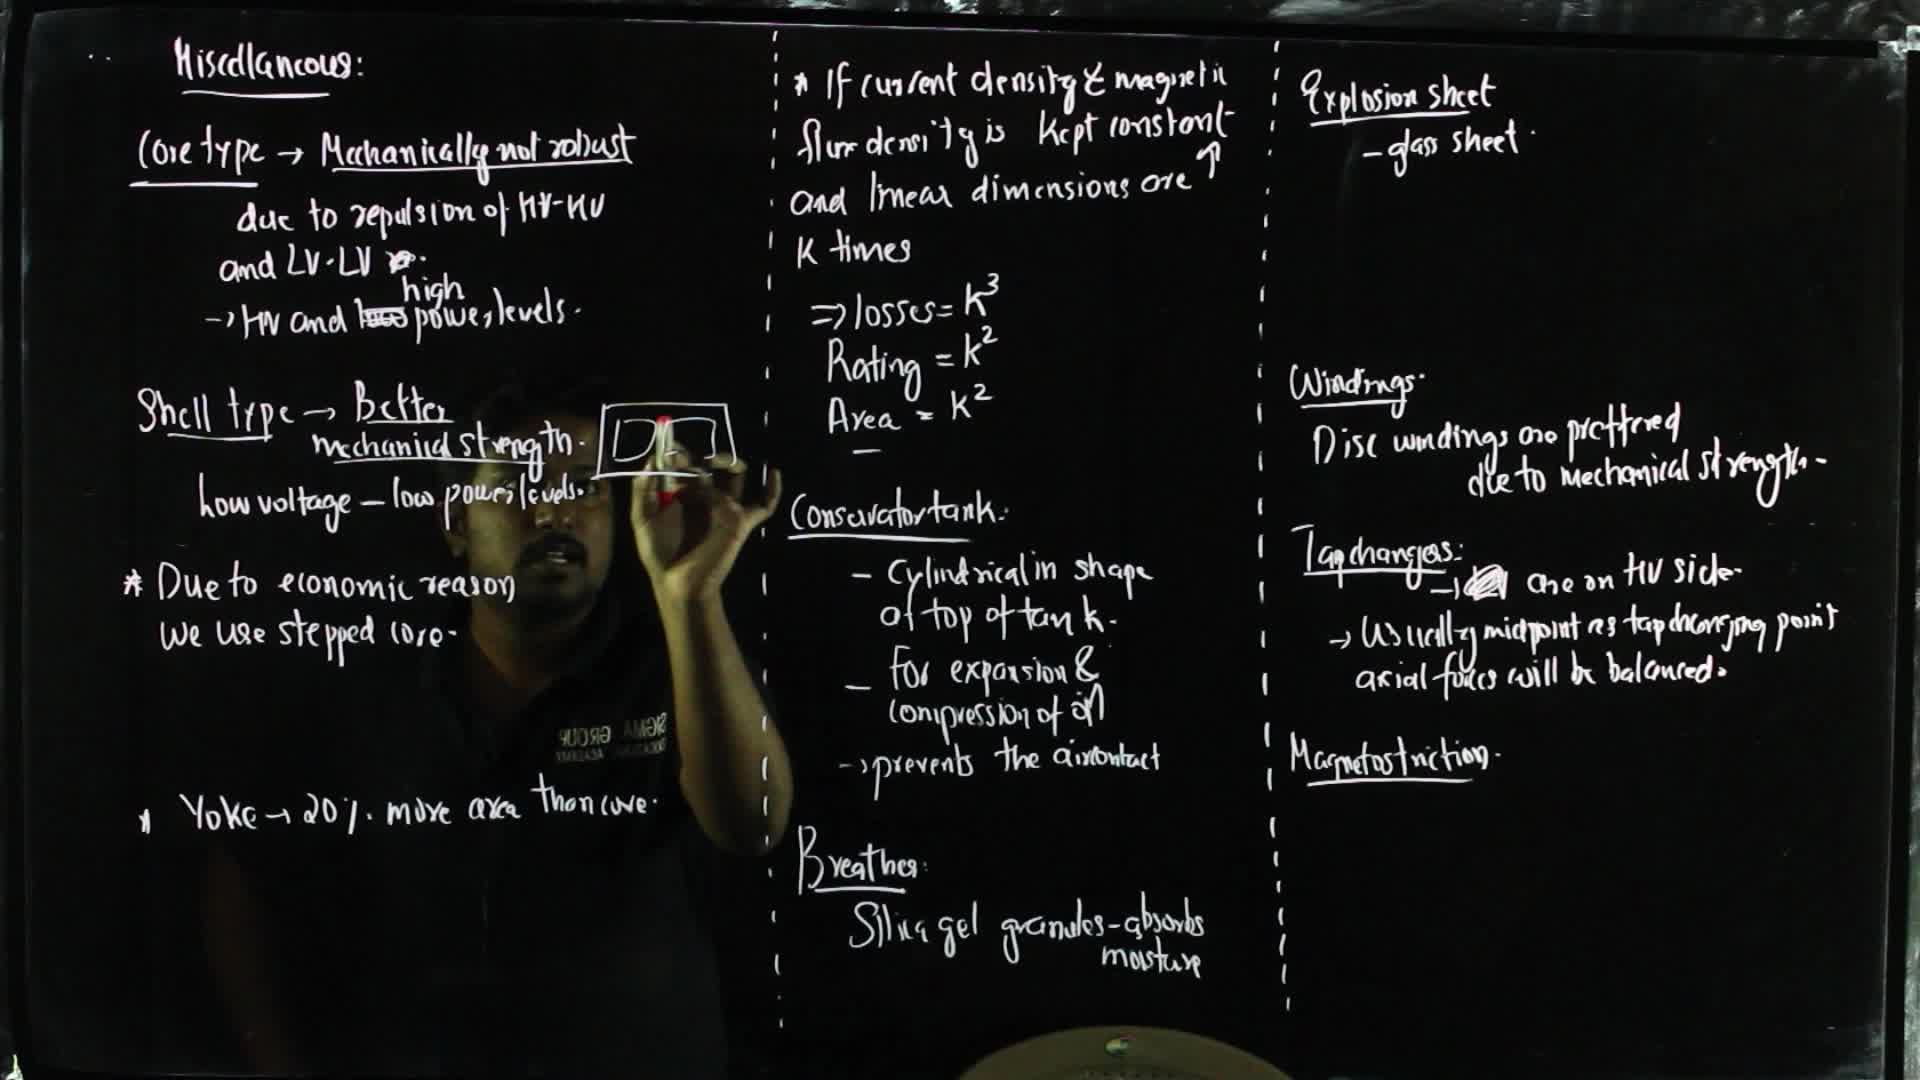 Miscellaneous:
Core type → Mechanically not robust
due to repulsion of HV-HV
and LV-LV
high
→ HV and power levels.
Shell type → Better
mechanical strength.
Low voltage - low power levels.
* Due to economic reason
we use stepped core.
* Yoke → 20%. more area than core.
* If current density & magnetic
flux density is kept constant
and linear dimensions are ↑
K times
⇒ losses = K³
Rating = K²
Area = K²
Conservator tank:
- Cylindrical in shape
at top of tank.
- For expansion &
compression of oil
→ prevents the air contact
Breather:
Silica gel granules - absorbs
moisture
Explosion sheet
- glass sheet.
Windings.
Disc windings are preffered
due to mechanical strength.
Tap changers:
→ are on HV side.
→ Usually midpoint as tap changing point
axial forces will be balanced.
Magnetostriction.
SIGMA GROUP